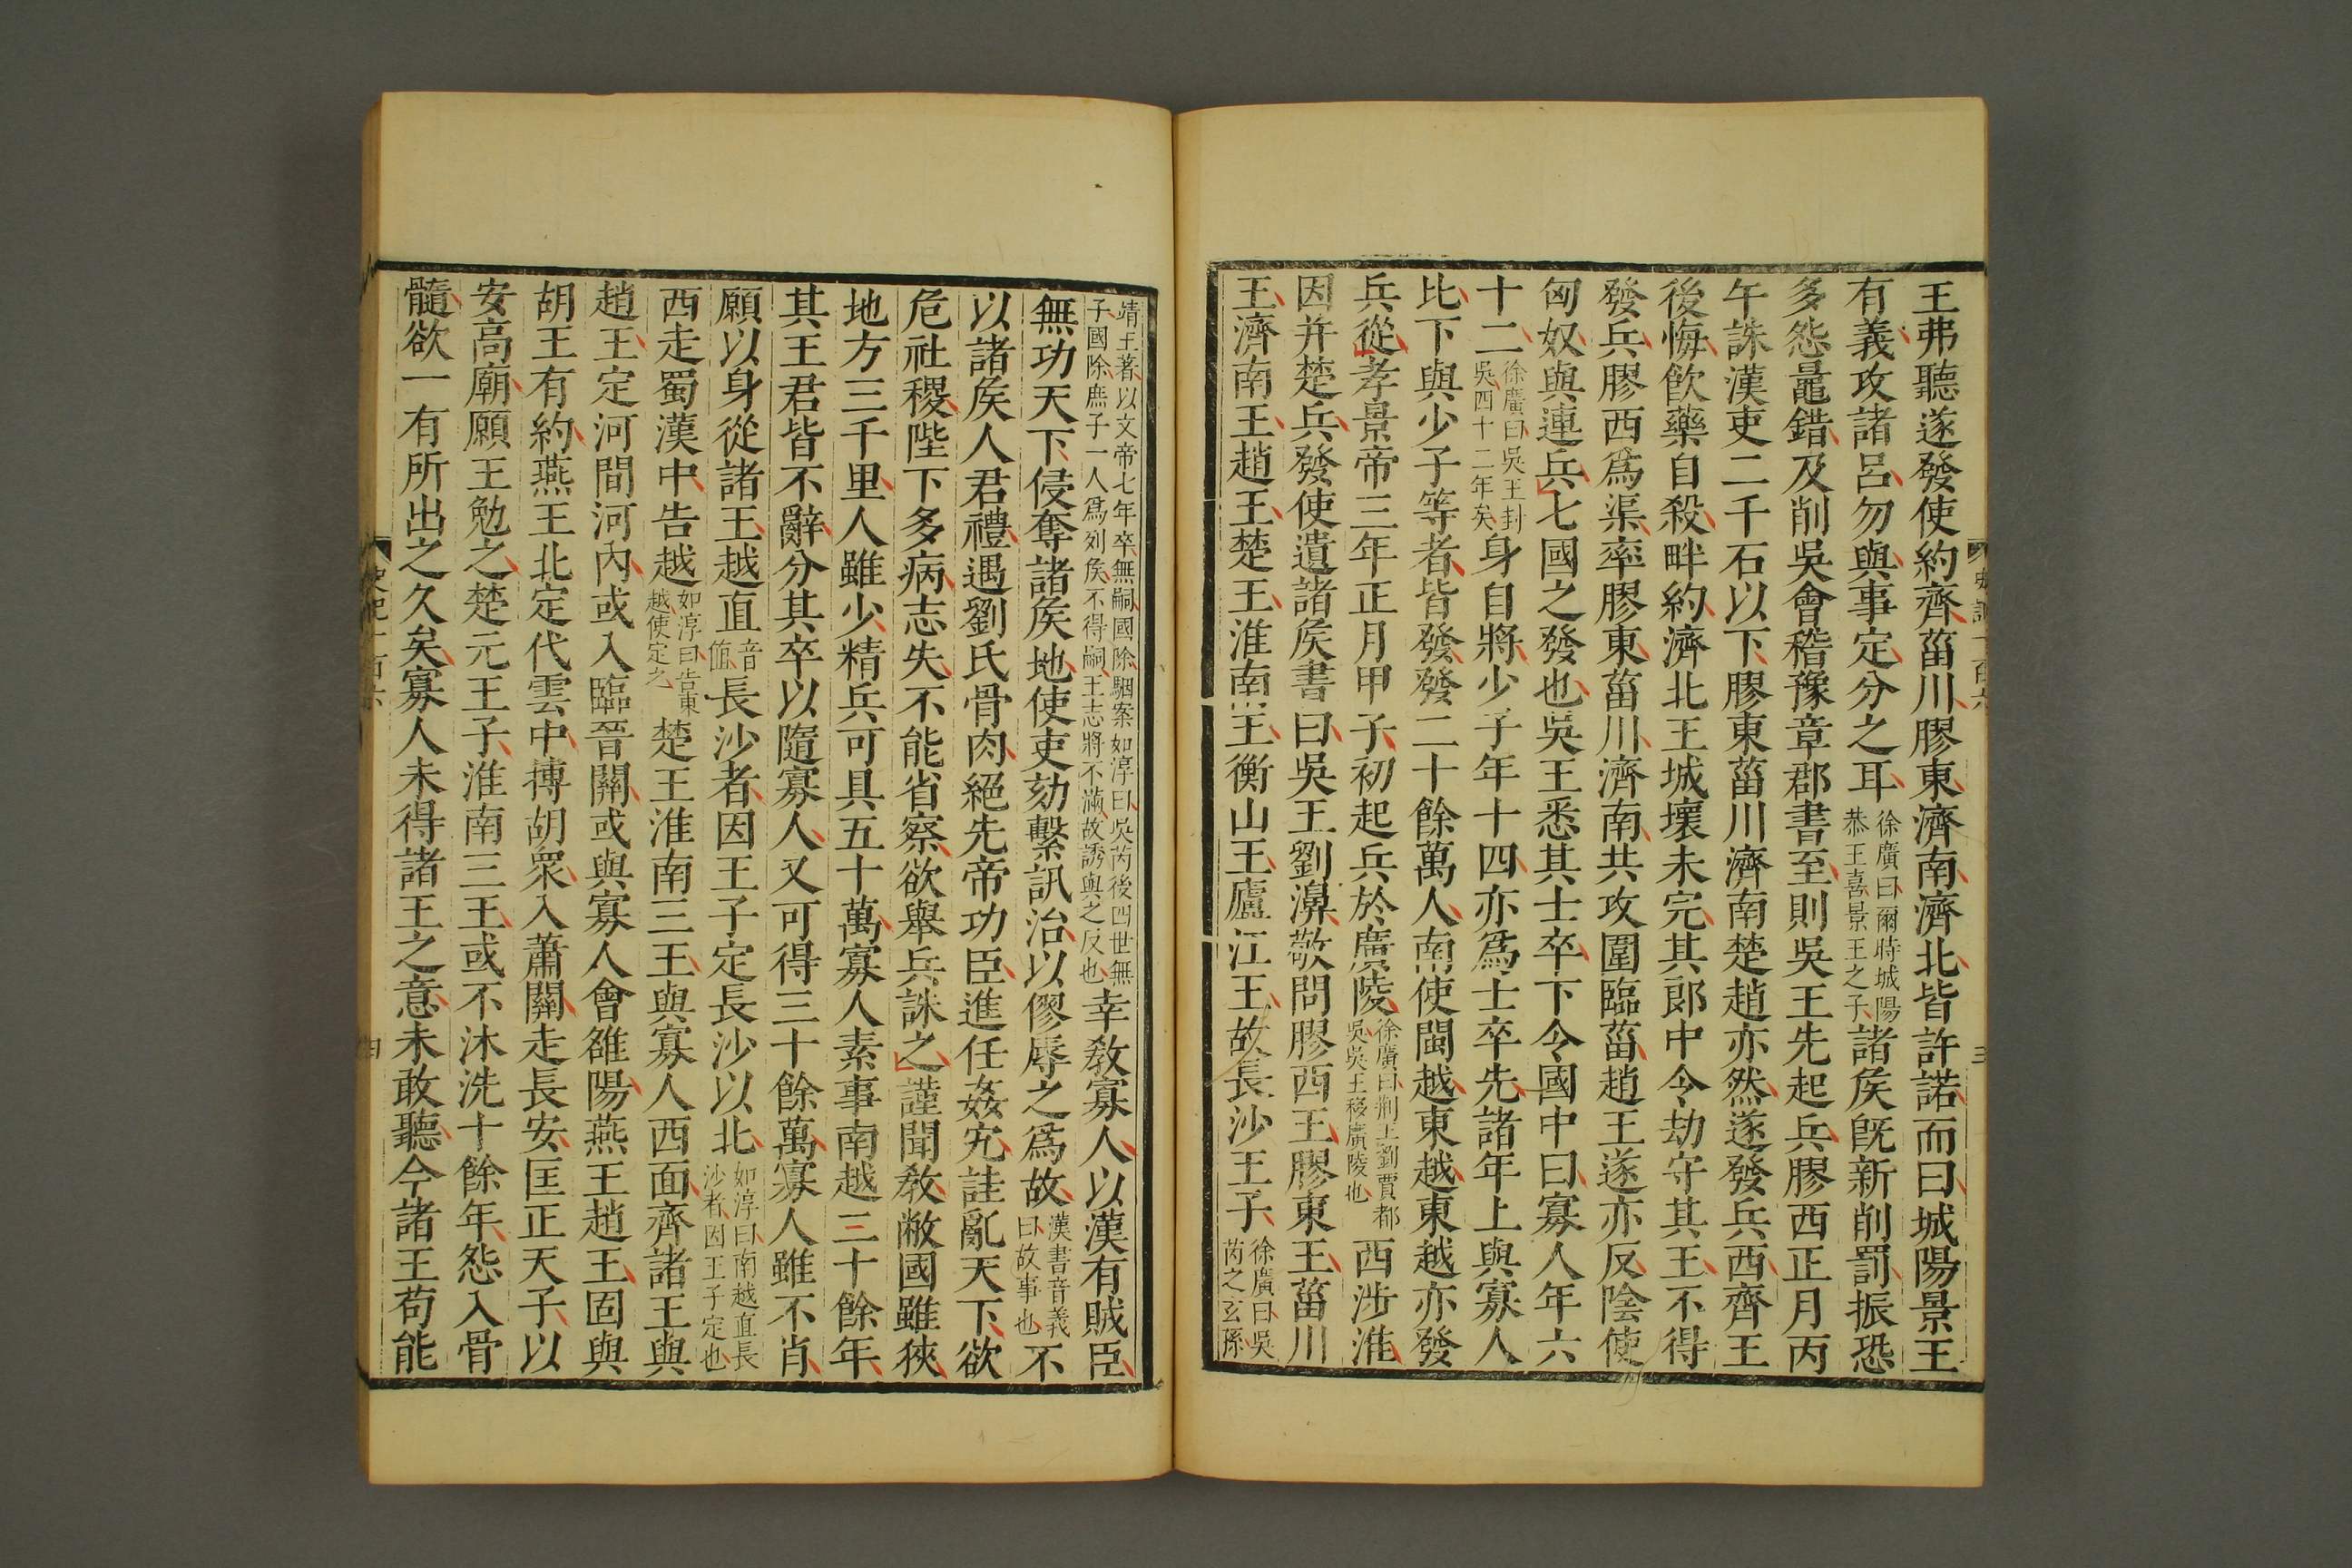 王弗聽遂發使約齊菑川膠東濟南濟北皆許諾而曰城陽景王
有義攻諸呂勿與事定分之耳徐廣曰爾時城陽恭王喜景王之子諸矦旣新削罰振恐
多怨鼂錯及削吳會稽豫章郡書至則吳王先起兵膠西正月丙
午誅漢吏二千石以下膠東菑川濟南楚趙亦然遂發兵西齊王
後悔飮藥自殺畔約濟北王城壞未完其郎中令劫守其王不得
發兵膠西爲渠率膠東菑川濟南共攻圍臨菑趙王遂亦反陰使
匈奴與連兵七國之發也吳王悉其士卒下令國中曰寡人年六
十二徐廣曰吳王封吳四十二年矣身自將少子年十四亦爲士卒先諸年上與寡人
比下與少子等者皆發發二十餘萬人南使閩越東越東越亦發
兵從孝景帝三年正月甲子初起兵於廣陵徐廣曰荆王劉賈都吳吳王移廣陵也西涉淮
因并楚兵發使遺諸矦書曰吳王劉濞敬問膠西王膠東王菑川
王濟南王趙王楚王淮南王衡山王廬江王故長沙王子徐廣曰吳芮之玄孫
靖王著以文帝七年卒無嗣國除駰案如淳曰吳芮後四世無子國除庶子二人爲列矦不得嗣王志將不滿故誘與之反也幸敎寡人以漢有賊臣
無功天下侵奪諸矦地使吏劾繫訊治以僇辱之爲故漢書音義曰故事也不
以諸矦人君禮遇劉氏骨肉絕先帝功臣進任姦宄詿亂天下欲
危社稷陛下多病志失不能省察欲舉兵誅之謹聞敎敝國雖狹
地方三千里人雖少精兵可具五十萬寡人素事南越三十餘年
其王君皆不辭分其卒以隨寡人又可得三十餘萬寡人雖不肖
願以身從諸王越直音値長沙者因王子定長沙以北如淳曰南越直長沙者因王子定也
西走蜀漢中告越如淳曰告東越使定之楚王淮南三王與寡人西面齊諸王與
趙王定河間河內或入臨晉關或與寡人會雒陽燕王趙王固與
胡王有約燕王北定代雲中摶胡衆入蕭關走長安匡正天子以
安高廟願王勉之楚元王子淮南三王或不沐洗十餘年怨入骨
髓欲一有所出之久矣寡人未得諸王之意未敢聽今諸王苟能
史記一百六